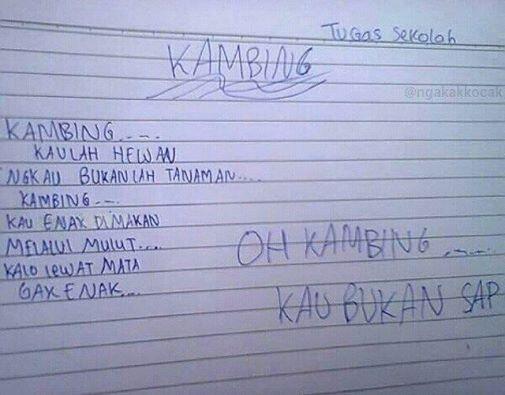 Tugas Sekolah
KAMBING
@ngakakkocak
KAMBING....
KAULAH HEWAN
NGKAU BUKANLAH TANAMAN....
KAMBING....
KAU ENAK DIMAKAN
MELALUI MULUT....
KALO LEWAT MATA
GAK ENAK...
OH KAMBING .....
KAU BUKAN SAP